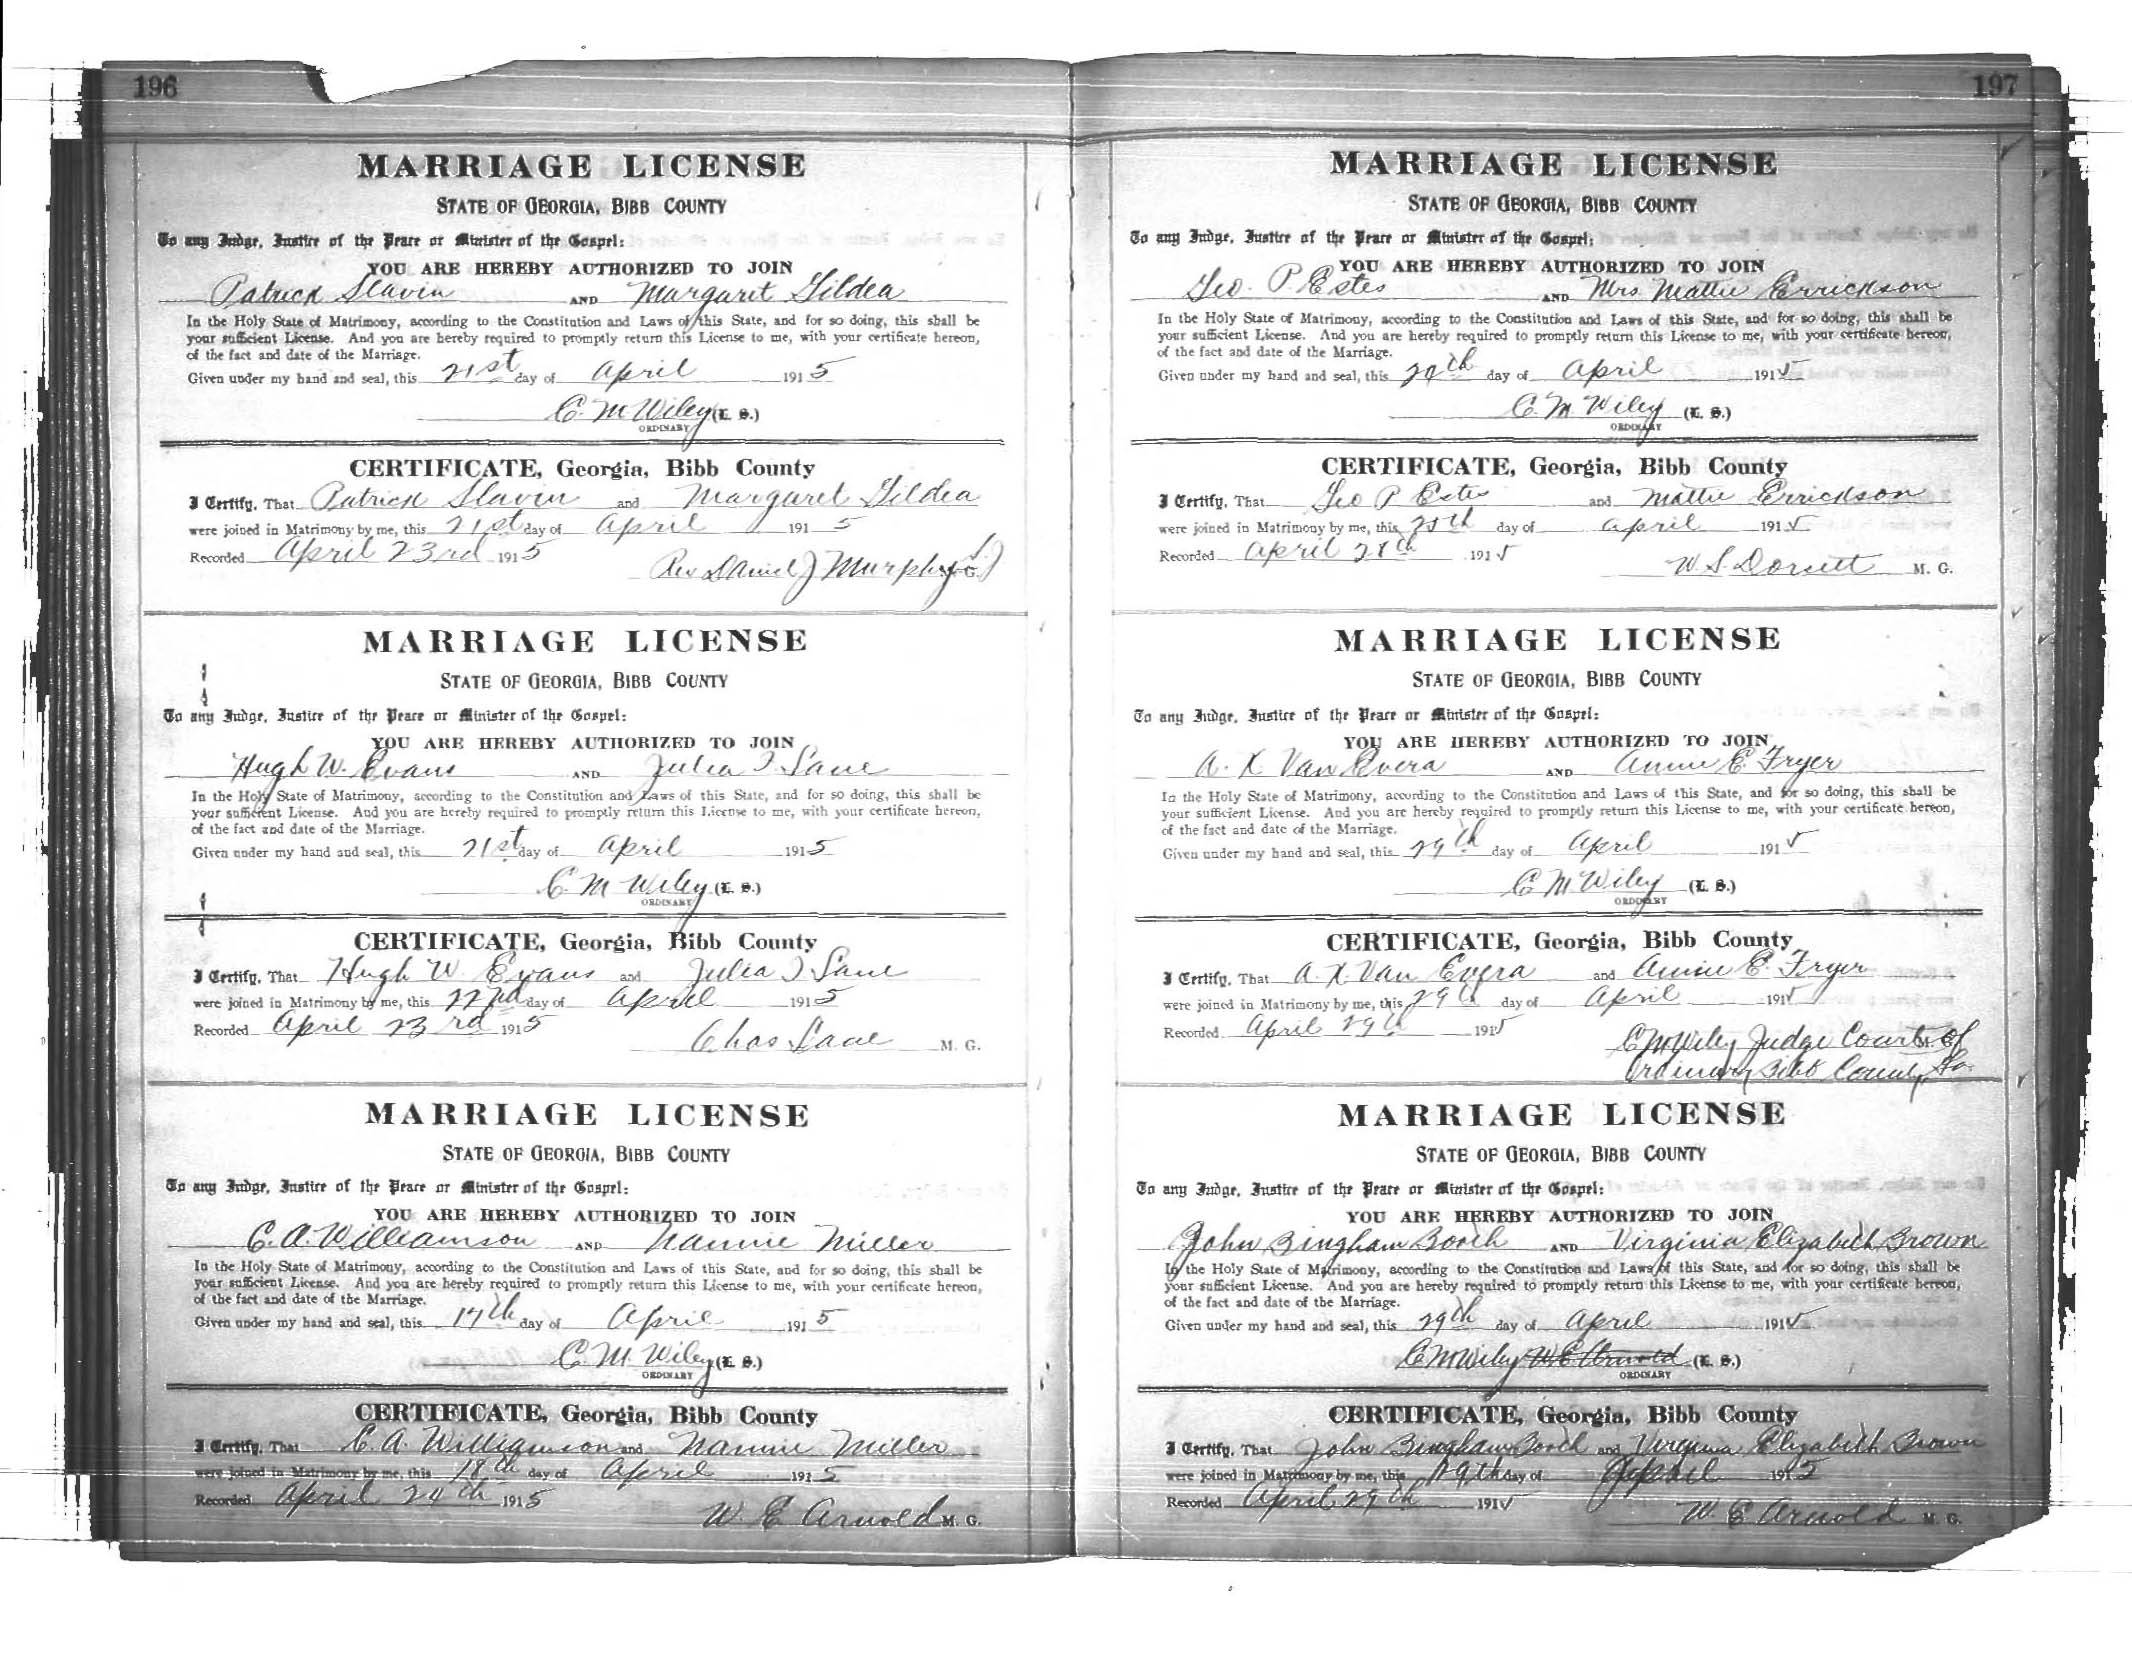 196
MARRIAGE LICENSE
STATE OF GEORGIA, BIBB COUNTY
To any Judge, Justice of the Peace or Minister of the Gospel:
YOU ARE HEREBY AUTHORIZED TO JOIN
Patrick Slavin AND Margaret Gildea
In the Holy State of Matrimony, according to the Constitution and Laws of this State, and for so doing, this shall be
your sufficient License. And you are hereby required to promptly return this License to me, with your certificate hereon,
of the fact and date of the Marriage.
Given under my hand and seal, this 21st day of April 1915
C. M Wiley (L. S.)
ORDINARY
CERTIFICATE, Georgia, Bibb County
I Certify, That Patrick Slavin and Margaret Gildea
were joined in Matrimony by me, this 21st day of April 1915
Recorded April 23rd 1915
Rev Daniel J Murphy S.J
MARRIAGE LICENSE
STATE OF GEORGIA, BIBB COUNTY
To any Judge, Justice of the Peace or Minister of the Gospel:
YOU ARE HEREBY AUTHORIZED TO JOIN
Hugh W. Evans AND Julia I Lane
In the Holy State of Matrimony, according to the Constitution and Laws of this State, and for so doing, this shall be
your sufficient License. And you are hereby required to promptly return this License to me, with your certificate hereon,
of the fact and date of the Marriage.
Given under my hand and seal, this 21st day of April 1915
C. M Wiley (L. S.)
ORDINARY
CERTIFICATE, Georgia, Bibb County
I Certify, That Hugh W. Evans and Julia I Lane
were joined in Matrimony by me, this 22nd day of April 1915
Recorded April 23rd 1915
Chas Lane M. G.
MARRIAGE LICENSE
STATE OF GEORGIA, BIBB COUNTY
To any Judge, Justice of the Peace or Minister of the Gospel:
YOU ARE HEREBY AUTHORIZED TO JOIN
C. A. Williamson AND Nannie Miller
In the Holy State of Matrimony, according to the Constitution and Laws of this State, and for so doing, this shall be
your sufficient License. And you are hereby required to promptly return this License to me, with your certificate hereon,
of the fact and date of the Marriage.
Given under my hand and seal, this 17th day of April 1915
C. M. Wiley (L. S.)
ORDINARY
CERTIFICATE, Georgia, Bibb County
I Certify, That C. A. Williamson and Nannie Miller
were joined in Matrimony by me, this 18th day of April 1915
Recorded April 24th 1915
W. E Arnold M. G.
197
MARRIAGE LICENSE
STATE OF GEORGIA, BIBB COUNTY
To any Judge, Justice of the Peace or Minister of the Gospel:
YOU ARE HEREBY AUTHORIZED TO JOIN
Geo. P. Estes AND Mrs Mattie Errickson
In the Holy State of Matrimony, according to the Constitution and Laws of this State, and for so doing, this shall be
your sufficient License. And you are hereby required to promptly return this License to me, with your certificate hereon,
of the fact and date of the Marriage.
Given under my hand and seal, this day of April 1915
C. M Wiley (L. S.)
ORDINARY
CERTIFICATE, Georgia, Bibb County
I Certify, That Geo P Estes and Mattie Errickson
were joined in Matrimony by me, this day of April 1915
Recorded April 28th 1915
W. S. Dorsett M. G.
MARRIAGE LICENSE
STATE OF GEORGIA, BIBB COUNTY
To any Judge, Justice of the Peace or Minister of the Gospel:
YOU ARE HEREBY AUTHORIZED TO JOIN
A. X Van Evera AND Annie E. Fryer
In the Holy State of Matrimony, according to the Constitution and Laws of this State, and for so doing, this shall be
your sufficient License. And you are hereby required to promptly return this License to me, with your certificate hereon,
of the fact and date of the Marriage.
Given under my hand and seal, this 29th day of April 1915
C M Wiley (L. S.)
ORDINARY
CERTIFICATE, Georgia, Bibb County
I Certify, That A. X. Van Evera and Annie E. Fryer
were joined in Matrimony by me, this 29th day of April 1915
Recorded April 29th 1915
C M Wiley Judge Court of
Ordinary Bibb County, Ga.
MARRIAGE LICENSE
STATE OF GEORGIA, BIBB COUNTY
To any Judge, Justice of the Peace or Minister of the Gospel:
YOU ARE HEREBY AUTHORIZED TO JOIN
John Bingham Booth AND Virginia Elizabeth Brown
In the Holy State of Matrimony, according to the Constitution and Laws of this State, and for so doing, this shall be
your sufficient License. And you are hereby required to promptly return this License to me, with your certificate hereon,
of the fact and date of the Marriage.
Given under my hand and seal, this 29th day of April 1915
C M Wiley W E Arnold (L. S.)
ORDINARY
CERTIFICATE, Georgia, Bibb County
I Certify, That John Bingham Booth and Virginia Elizabeth Brown
were joined in Matrimony by me, this 29th day of April 1915
Recorded April 29th 1915
W. E Arnold M. G.